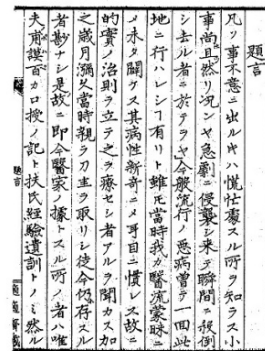 題言
凡ソ事不意ニ出ルキハ慌忙處スル所ヲ知ラス小
事尚且然リ況ンヤ急劇ニ侵襲シ来テ瞬間ニ殺倒
シ去ル者ニ於テヲヤ今般流行ノ悪病曽テ一回此
地ニ行ハレシ有リト雖𪜈當時我カ醫流蒙昧ニ
メ永夕闕クス其病性新奇ニメ耳目ニ慣レス故ニ
的實ノ治則ヲ立テ之ヲ療セシ者アルヲ聞カス加
之歳月瀰久當時親ラ刀圭ヲ取リシ徒今仍存スル
者尠ナシ是故ニ即今醫家ノ據トスル所ノ者ハ唯
夫甫謨百カ口授ノ記ト扶氏經驗遺訓トノミ然ル
題言